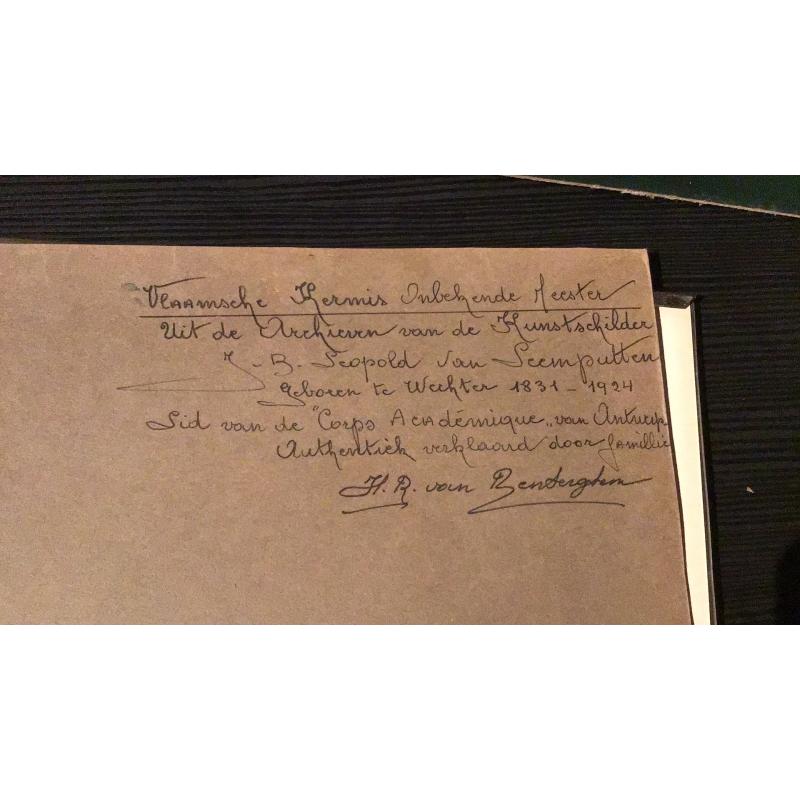 Vlaamsche Kermis Onbekende Meester
Uit de Archieven van de Kunstschilder
J.-B. Leopold Van Leemputten
Geboren te Wechter 1831 - 1924
Lid van de "Corps Académique" van Antwerp.
Authentiek verklaard door famillie
H. R. van